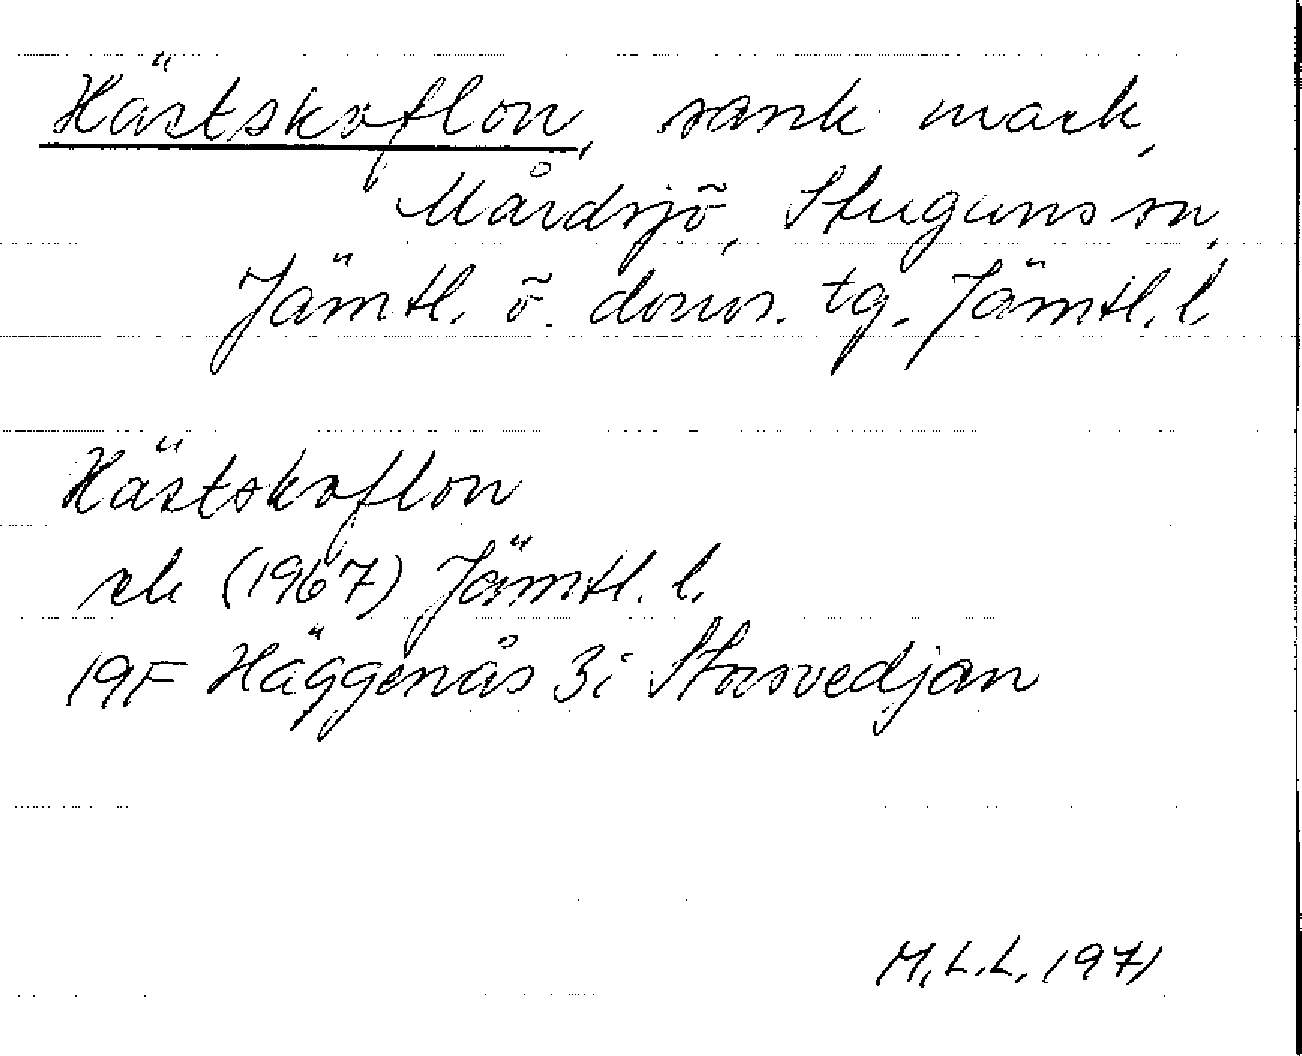 Hästskoflon, sank mark,
Mårdsjö, Stuguns sn,
Jämtl. ö. doms. tg. Jämtl. l.
Hästskoflon
ek (1967) Jämtl. l.
19F Häggenås 3i Storsvedjan
M.L.L. 1971